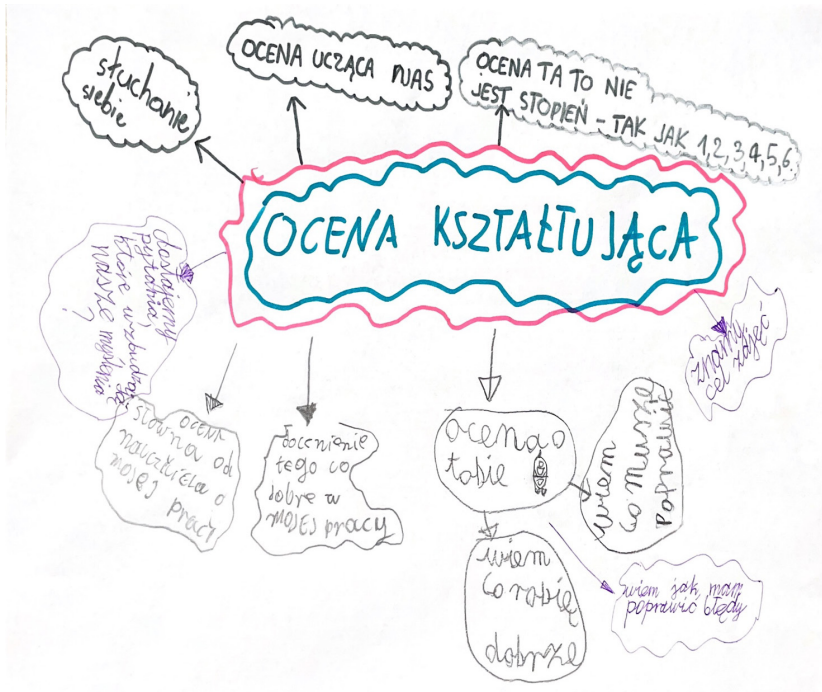 słuchanie
siebie
OCENA UCZĄCA NAS
OCENA TA TO NIE
JEST STOPIEŃ - TAK JAK 1,2,3,4,5,6.
OCENA KSZTAŁTUJĄCA
dostajemy
pytania,
które wzbudzają
nasze myślenia
?
znamy
cel zajęć
OCENA
słowna od
nauczyciela o
mojej pracy
docenienie
tego co
dobre w
MOJEJ pracy
ocena o
tobie
wiem
co muszę
poprawić
wiem
co robię
dobrze
wiem jak mam
poprawić błędy